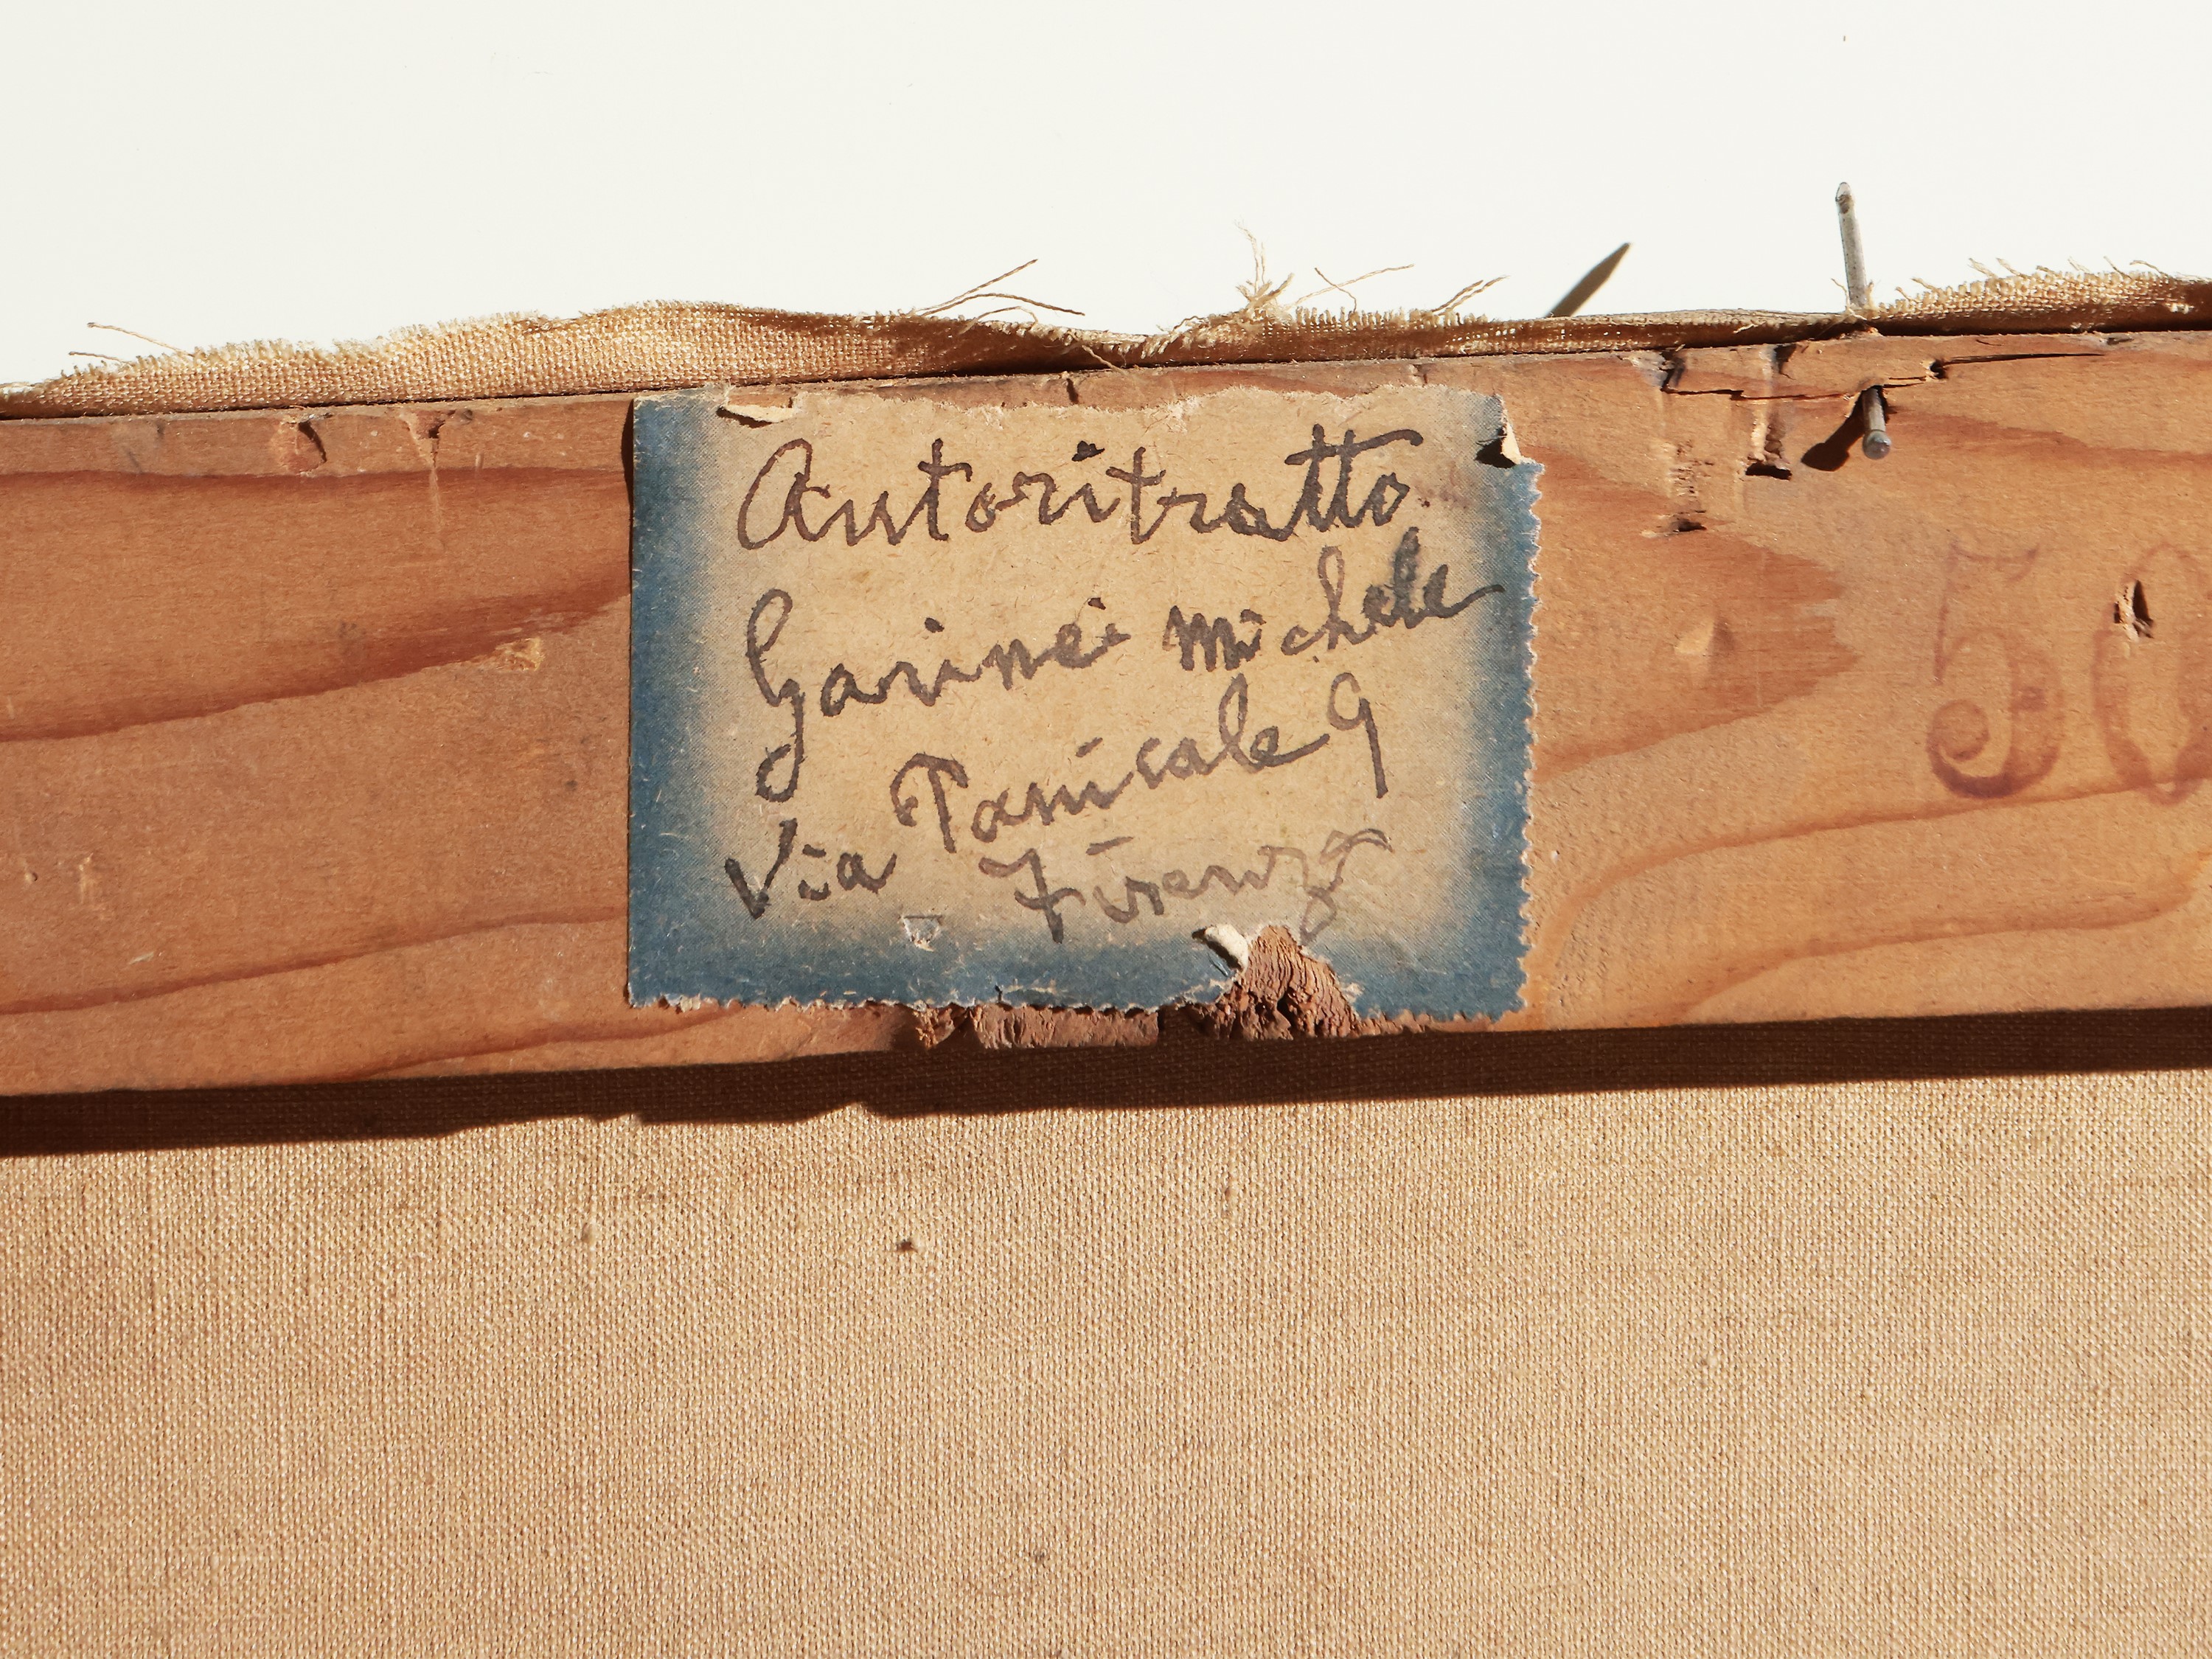 Autoritratto
Garinei Michele
Via Panicale 9
Firenze
50